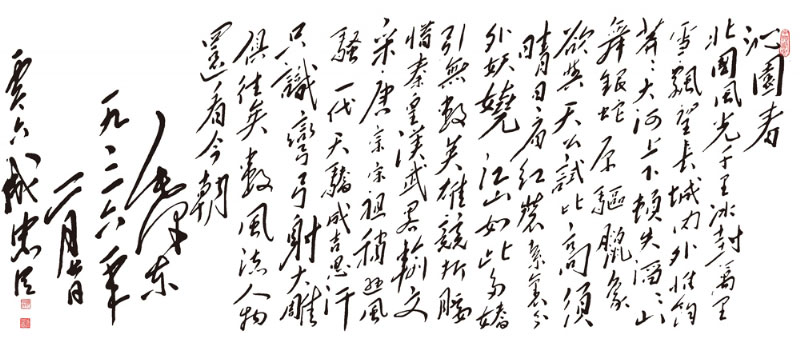 沁園春
北國風光千里冰封萬里
雪飄望長城内外惟餘
莽々大河上下頓失滔々山
舞銀蛇原驅臘象
欲與天公試比高須
晴日看紅裝素裹分
外妖嬈江山如此多嬌
引無數英雄競折腰
惜秦皇漢武略輸文
采唐宗宋祖稍遜風
騷一代天驕成吉思汗
只識彎弓射大雕
俱往矣數風流人物
還看今朝
毛澤東
一九三六年
二月